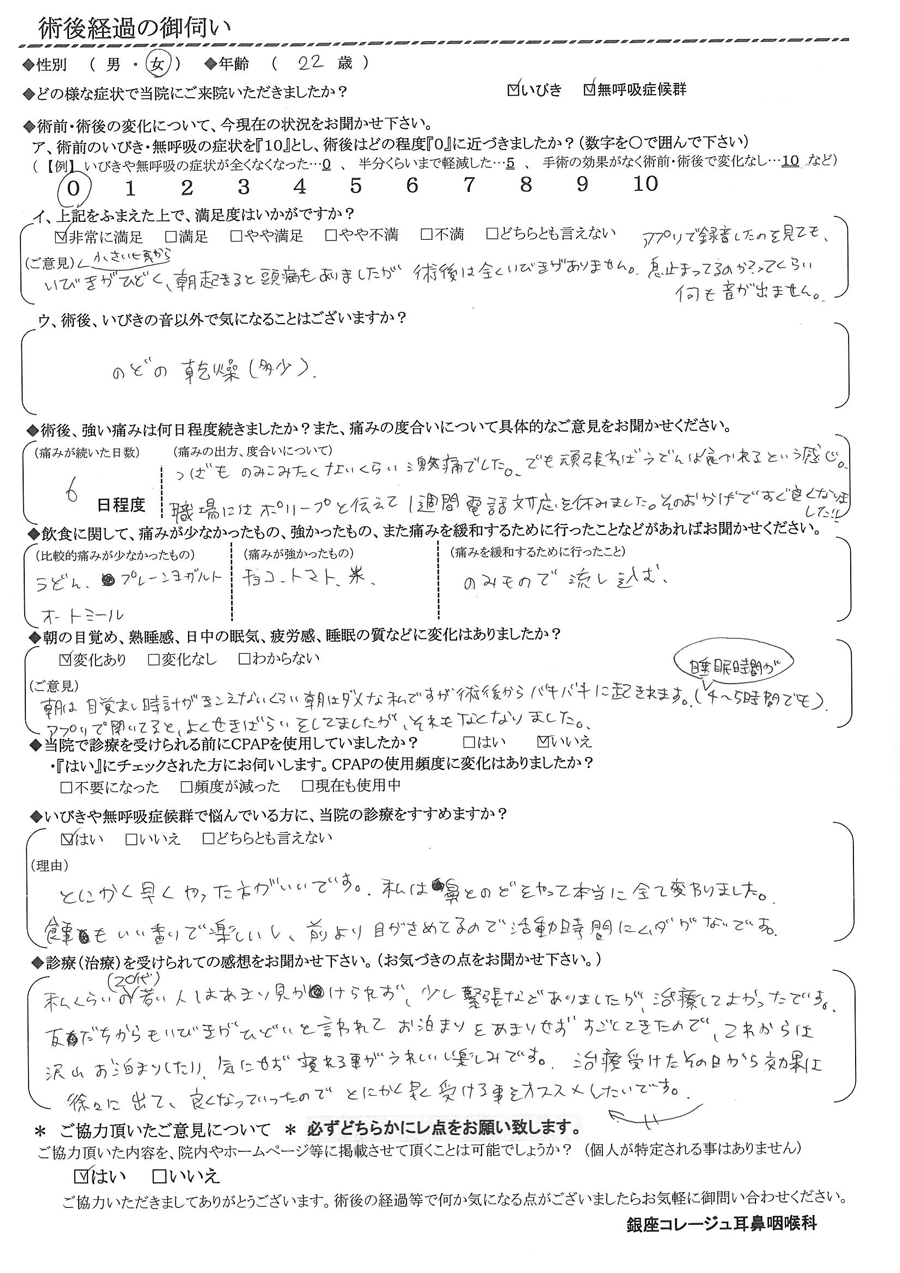 術後経過の御伺い
◆性別 （ 男 ・ 女 ） ◆年齢 （ 22 歳 ）
◆どの様な症状で当院にご来院いただきましたか？ ☑いびき ☑無呼吸症候群
◆術前・術後の変化について、今現在の状況をお聞かせ下さい。
ア、術前のいびき・無呼吸の症状を『10』とし、術後はどの程度『0』に近づきましたか？（数字を〇で囲んで下さい）
（【例】いびきや無呼吸の症状が全くなくなった…0 、 半分くらいまで軽減した…5 、 手術の効果がなく術前・術後で変化なし…10 など）
0 1 2 3 4 5 6 7 8 9 10
イ、上記をふまえた上で、満足度はいかがですか？
☑非常に満足 □満足 □やや満足 □やや不満 □不満 □どちらとも言えない
(ご意見) 小さい頃から
いびきがひどく、朝起きると頭痛もありましたが 術後は全くいびきがありません。
アプリで録音したのを見ても、
息止まってるのか？ってくらい
何も音が出ません。
ウ、術後、いびきの音以外で気になることはございますか？
のどの 乾燥（多少）.
◆術後、強い痛みは何日程度続きましたか？また、痛みの度合いについて具体的なご意見をお聞かせください。
(痛みが続いた日数) (痛みの出方、度合いについて)
6 日程度
つばも のみこみたくないくらい 激痛でした。でも頑張ればうどんは食べれるという感じ。
職場にはポリープと伝えて 1週間電話対応を休みました。そのおかげですぐ良くなりました!!
◆飲食に関して、痛みが少なかったもの、強かったもの、また痛みを緩和するために行ったことなどがあればお聞かせください。
(比較的痛みが少なかったもの) (痛みが強かったもの) (痛みを緩和するために行ったこと)
うどん、プレーンヨーグルト
オートミール
チョコ、トマト、米、
のみもので 流し込む、
◆朝の目覚め、熟睡感、日中の眠気、疲労感、睡眠の質などに変化はありましたか？
☑変化あり □変化なし □わからない
(ご意見)
朝は 目覚まし時計がきこえないくらい 朝はダメな私ですが 術後から バチバチに起きれます。(睡眠時間が 4～5時間でも)
アプリで聞いてると、よくせきばらいをしてましたが、それもなくなりました。
◆当院で診療を受けられる前にCPAPを使用していましたか？ □はい ☑いいえ
・『はい』にチェックされた方にお伺いします。CPAPの使用頻度に変化はありましたか？
□不要になった □頻度が減った □現在も使用中
◆いびきや無呼吸症候群で悩んでいる方に、当院の診療をすすめますか？
☑はい □いいえ □どちらとも言えない
(理由)
とにかく早くやった方がいいです。私は鼻とのどをやって本当に全て変わりました。
食事もいい香りで楽しいし、前より目がさめてるので活動時間にムダがないです。
◆診療(治療)を受けられての感想をお聞かせ下さい。(お気づきの点をお聞かせ下さい。)
私くらいの(20代)若い人はあまり見かけられず、少し緊張などありましたが、治療してよかったです。
友だちからもいびきがひどいと言われて お泊まりをあまりせず すごしてきたので、これからは
沢山お泊まりしたり、気にせず 寝れる事がうれしいし楽しみです。治療受けたその日から効果は
徐々に出て、良くなっていったので とにかく早く受ける事をオススメしたいです。
＊ ご協力頂いたご意見について ＊ 必ずどちらかにレ点をお願い致します。
ご協力頂いた内容を、院内やホームページ等に掲載させて頂くことは可能でしょうか？ (個人が特定される事はありません)
☑はい □いいえ
ご協力いただきましてありがとうございます。術後の経過等で何か気になる点がございましたらお気軽に御問い合わせください。
銀座コレージュ耳鼻咽喉科